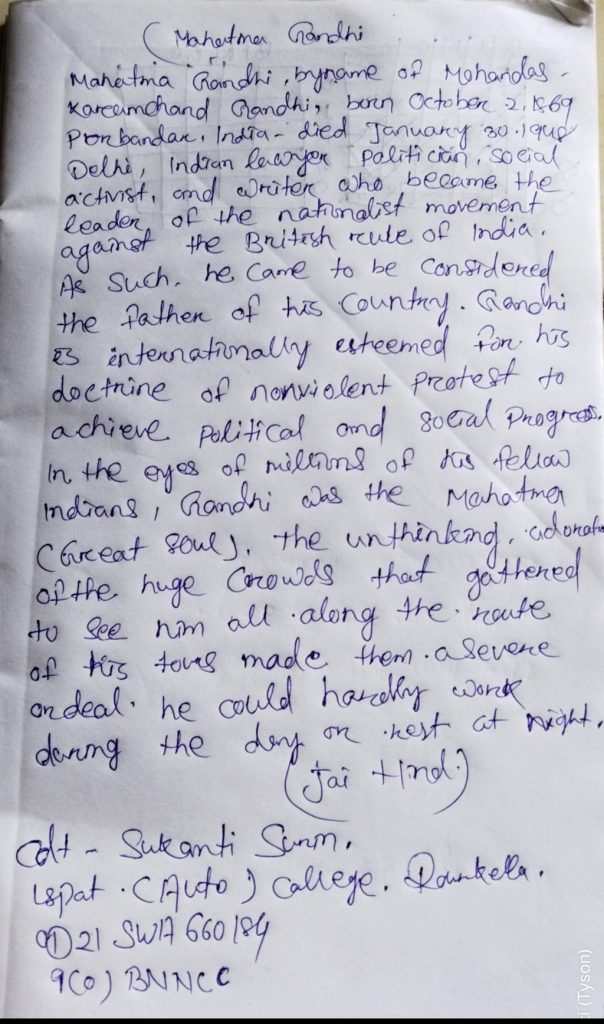 (Mahatma Gandhi
Mahatma Gandhi, byname of Mohandas -
Karamchand Gandhi, born October 2, 1869
Porbandar, India - died January 30. 1948
Delhi, Indian lawyer politician, social
activist, and writer who became the
leader of the nationalist movement
against the British rule of India.
As such, he came to be considered
the father of his country. Gandhi
is internationally esteemed for his
doctrine of nonviolent protest to
achieve political and social progress.
In the eyes of millions of his fellow
Indians, Gandhi was the Mahatma
(Great soul), the unthinking, adorat
of the huge crowds that gathered
to see him all along the route
of his tours made them a severe
ordeal. he could hardly work
during the day or rest at night.
(Jai Hind.)
Cdt - Sukanti Surin.
Ispat (Auto) College. Rourkela.
OD21 SWA 660184
9(O) BNNCC
i (Tyson)